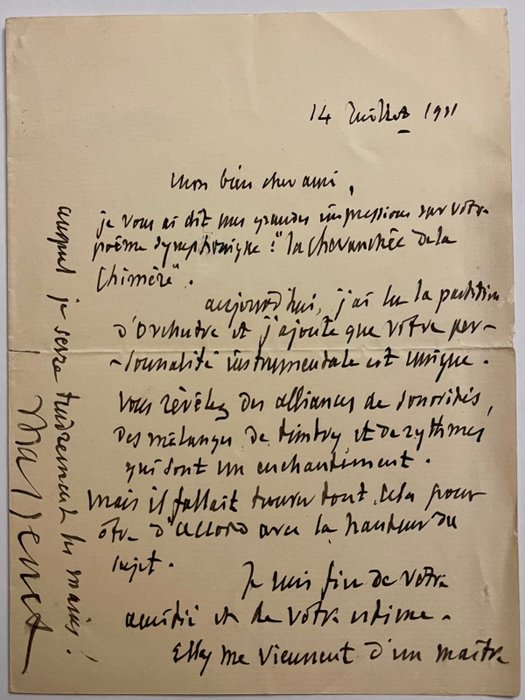 14 Juillet 1911
Mon bien cher ami,
je vous ai dit mes grandes impressions sur votre
poème symphonique : "la chevauchée de la
Chimère".
aujourd'hui, j'ai lu la partition
d'orchestre et j'ajoute que votre per-
-sonnalité instrumentale est unique.
Vous révélez des alliances de sonorités,
des mélanges de timbres et de rythmes
qui sont un enchantement.
Mais il fallait trouver tout cela pour
être d'accord avec la hauteur du
sujet.
Je suis fier de votre
amitié et de votre estime.
Elles me viennent d'un maître
auquel je serre tendrement les mains !
Massenet